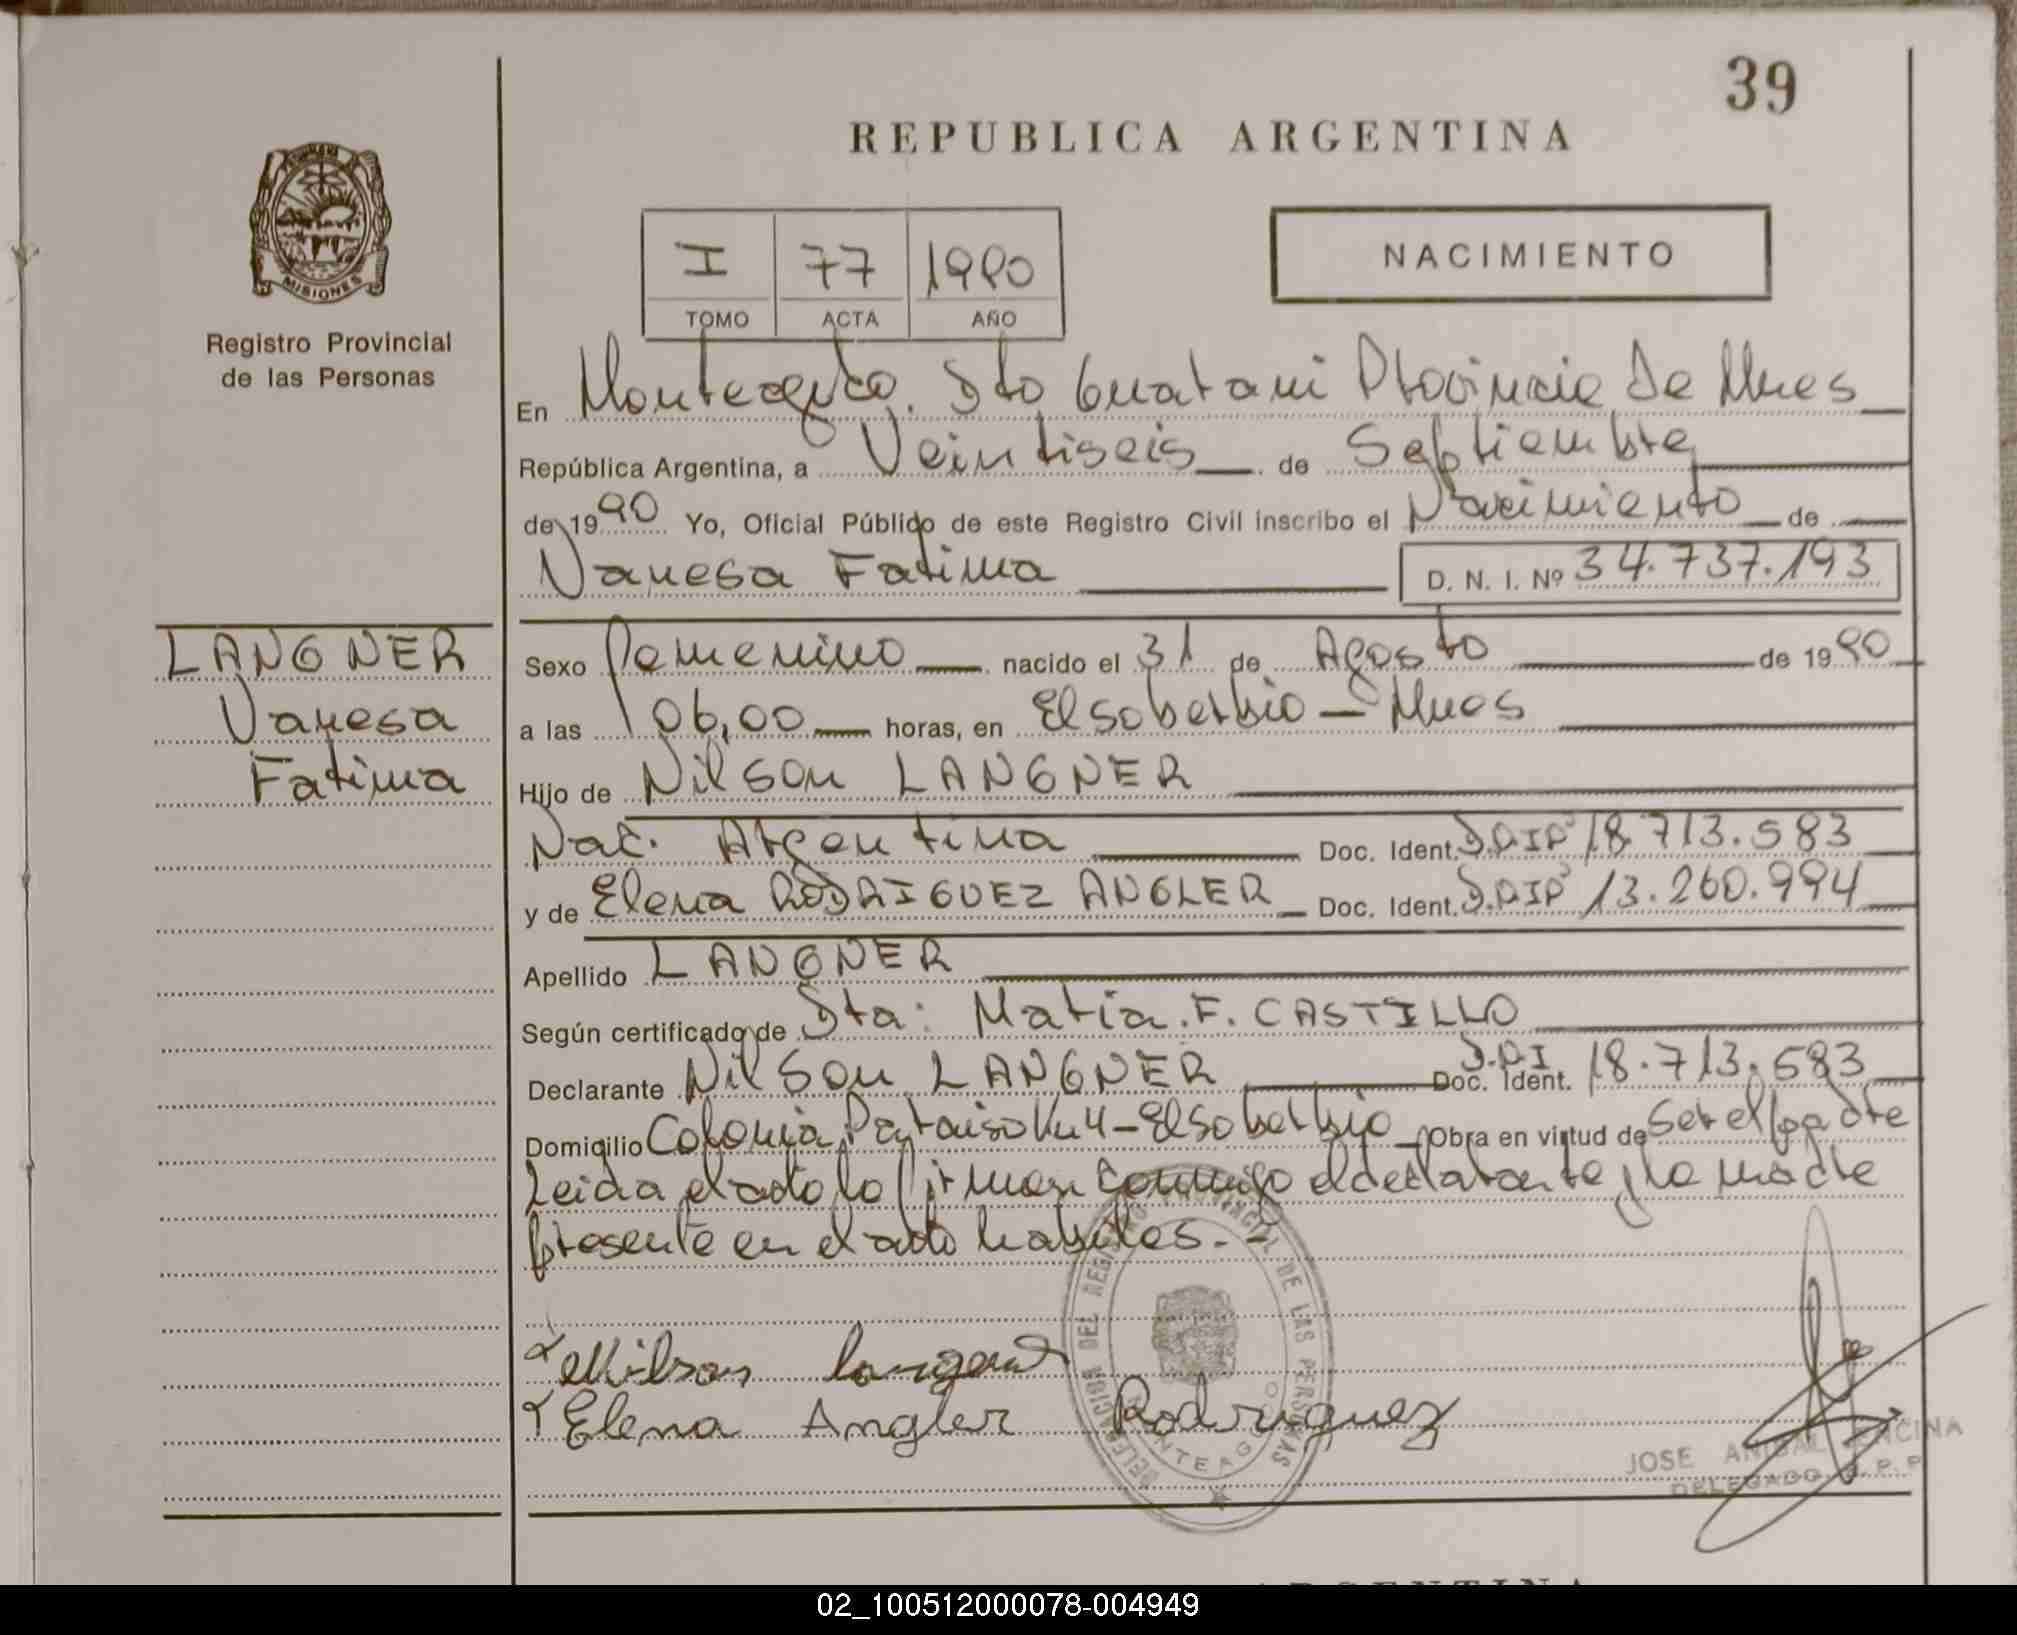 39
REPUBLICA ARGENTINA
MISIONES
Registro Provincial
de las Personas
I 77 1990
TOMO ACTA AÑO
NACIMIENTO
En Monteagudo. Dto Guarani Provincia De Mnes
República Argentina, a Veintiseis de Septiembre
de 1990 Yo, Oficial Público de este Registro Civil inscribo el Nacimiento de
Vanesa Fatima D. N. I. Nº 34.737.193
LANGNER
Vanesa
Fatima
Sexo Femenino nacido el 31 de Agosto de 1990
a las 06,00 horas, en El soberbio - Mnes
Hijo de Nilson LANGNER
Nac. Argentina Doc. Ident. 18.713.583
y de Elena RODRIGUEZ ANGLER Doc. Ident. 13.260.994
Apellido LANGNER
Según certificado de Dra: Maria. F. CASTILLO
Declarante Nilson LANGNER Doc. Ident. D.N.I 18.713.583
Domicilio Colonia Paraiso Km 4 - El soberbio Obra en virtud de Ser el padre
Leida el acto lo firman conmigo el declarante y la madre
presente en el acto habiles. -
Nilson Langner
Elena Angler Rodriguez
DELEGACION DEL REGISTRO PROVINCIAL DE LAS PERSONAS
MONTEAGUDO
JOSE ANIBAL ANCINA
DELEGADO R. P. P.
ARGENTINA
02_100512000078-004949